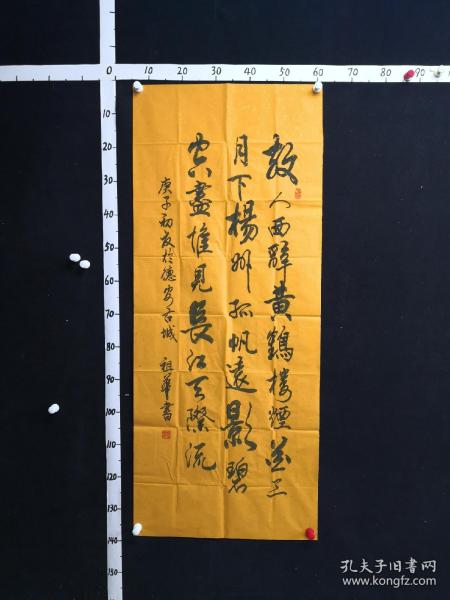 故人西辞黄鶴楼煙花三
月下楊州孤帆遠影碧
空盡惟見長江天際流
庚子初夏於德安古城 祖華書
0 10 20 30 40 50 60 70 80 90
10
20
30
40
50
60
70
80
90
100
110
120
130
140
孔夫子旧书网
www.kongfz.com